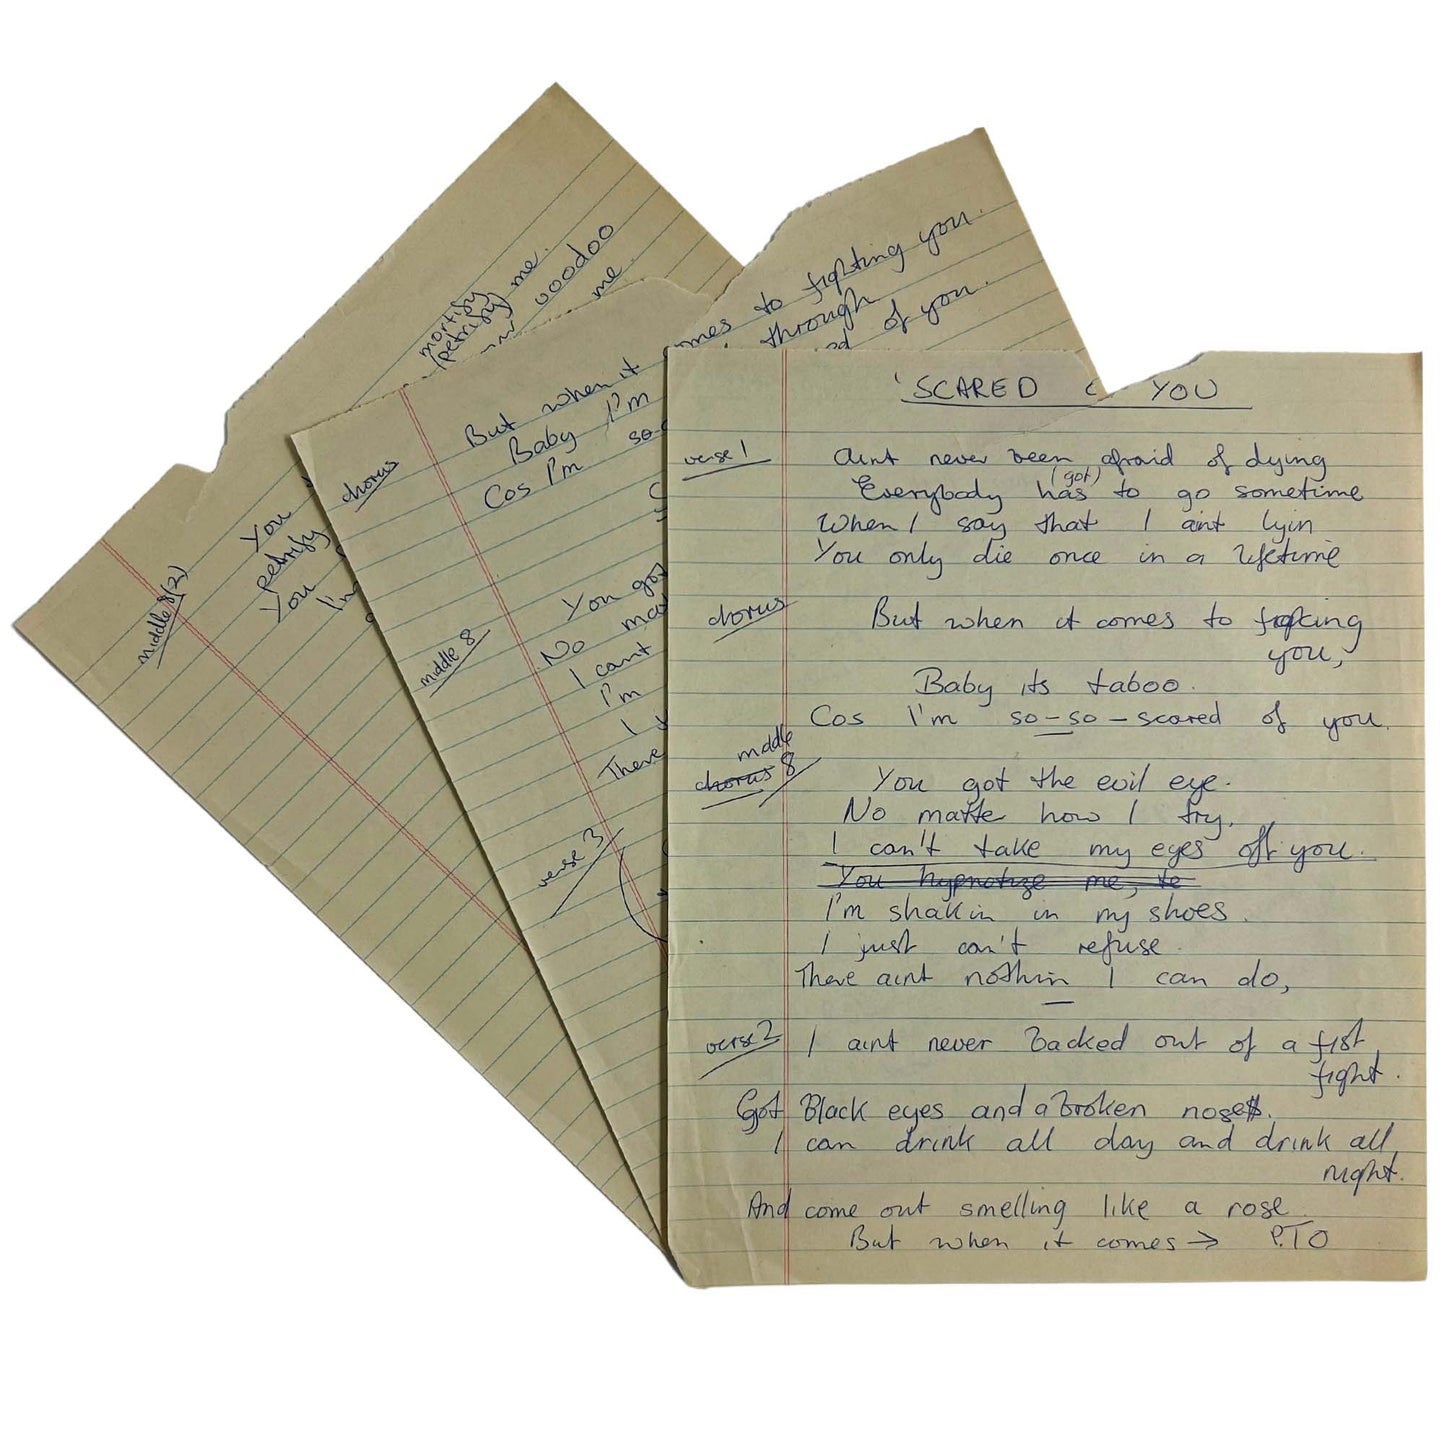 'SCARED YOU
verse 1
Aint never been afraid of dying
(got)
Everybody has to go sometime
When I say that I aint lyin
You only die once in a lifetime
chorus
But when it comes to fighting
you,
Baby its taboo.
Cos I'm so-so-scared of you.
middle
chorus 8
You got the evil eye.
No matte how I try.
I can't take my eyes off you.
You hypnotize me, te
I'm shakin in my shoes.
I just can't refuse.
There aint nothin I can do,
verse 2
I aint never backed out of a fist
fight.
Got Black eyes and a broken nose.
I can drink all day and drink all
night.
And come out smelling like a rose.
But when it comes → P.T.O
chorus
But when it comes to fighting you.
Baby I'm through
Cos I'm so of you.
middle 8
You got
No mat
I cant
I'm
I
There
verse 3
mortify
petrify me.
voodoo
me.
middle 8(2)
You
petrify
You
I'm